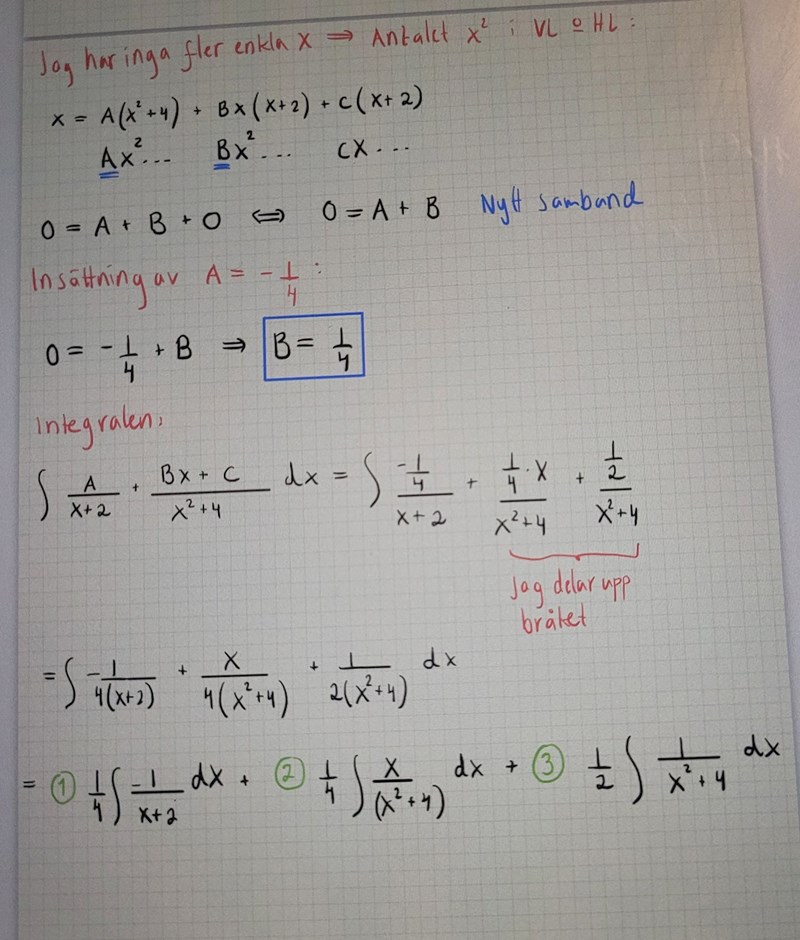 Jag har inga fler enkla x ⇒ Antalet x² i VL o HL :
x = A(x²+4) + Bx(x+2) + C(x+2)
Ax²... Bx²... Cx...
0 = A + B + 0 ⇔ 0 = A + B Nytt samband
Insättning av A = -1/4 :
0 = -1/4 + B ⇒ B = 1/4
Integralen:
∫ A/(x+2) + (Bx + C)/(x²+4) dx = ∫ (-1/4)/(x+2) + (1/4 · x)/(x²+4) + (1/2)/(x²+4)
Jag delar upp
bråket
= ∫ -1/(4(x+2)) + x/(4(x²+4)) + 1/(2(x²+4)) dx
= ① 1/4 ∫ -1/(x+2) dx + ② 1/4 ∫ x/(x²+4) dx + ③ 1/2 ∫ 1/(x²+4) dx